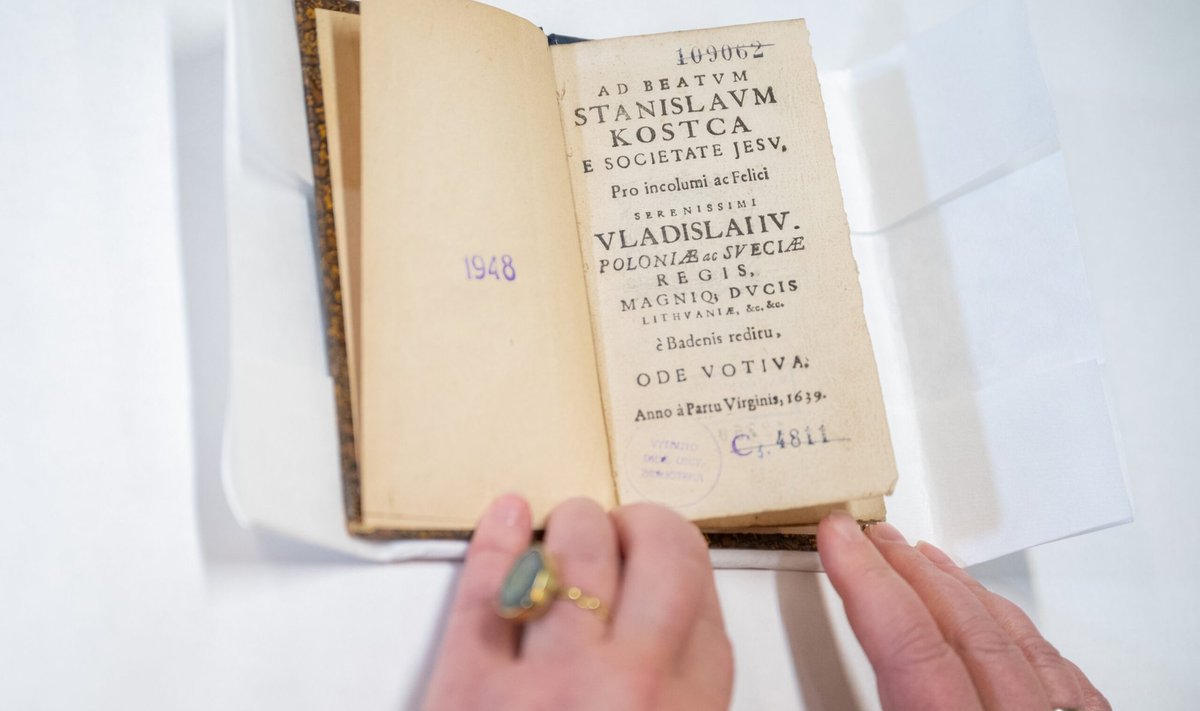 1948
109062
AD BEATVM
STANISLAVM
KOSTCA
E SOCIETATE JESV,
Pro incolumi ac Felici
SERENISSIMI
VLADISLAI IV.
POLONIÆ ac SVECIÆ
REGIS,
MAGNIQ; DVCIS
LITHVANIÆ, &c. &c.
è Badenis reditu,
ODE VOTIVA.
Anno à Partu Virginis, 1639.
C3. 4811
VYTAUTO
DIDŽ. UNIV.
BIBLIOTEKA